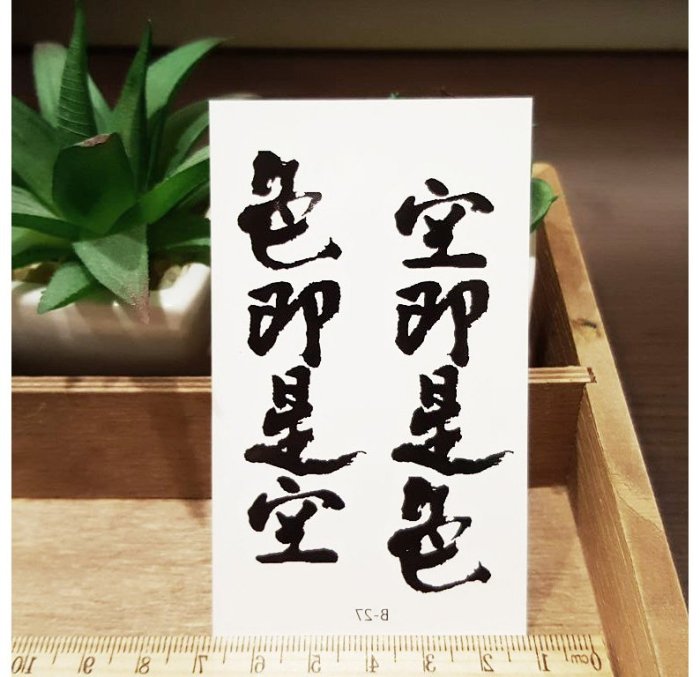 色即是空
空即是色
B-27
10 9 8 7 6 5 4 3 2 1 0cm